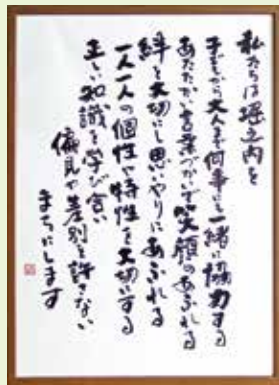 私たちは堀之内を
子どもから大人まで何事にも一緒に協力する
あたたかい言葉づかいで笑顔のあふれる
絆を大切にし思いやりにあふれる
一人一人の個性や特性を大切にする
正しい知識を学び合い
偏見や差別を許さない
まちにします